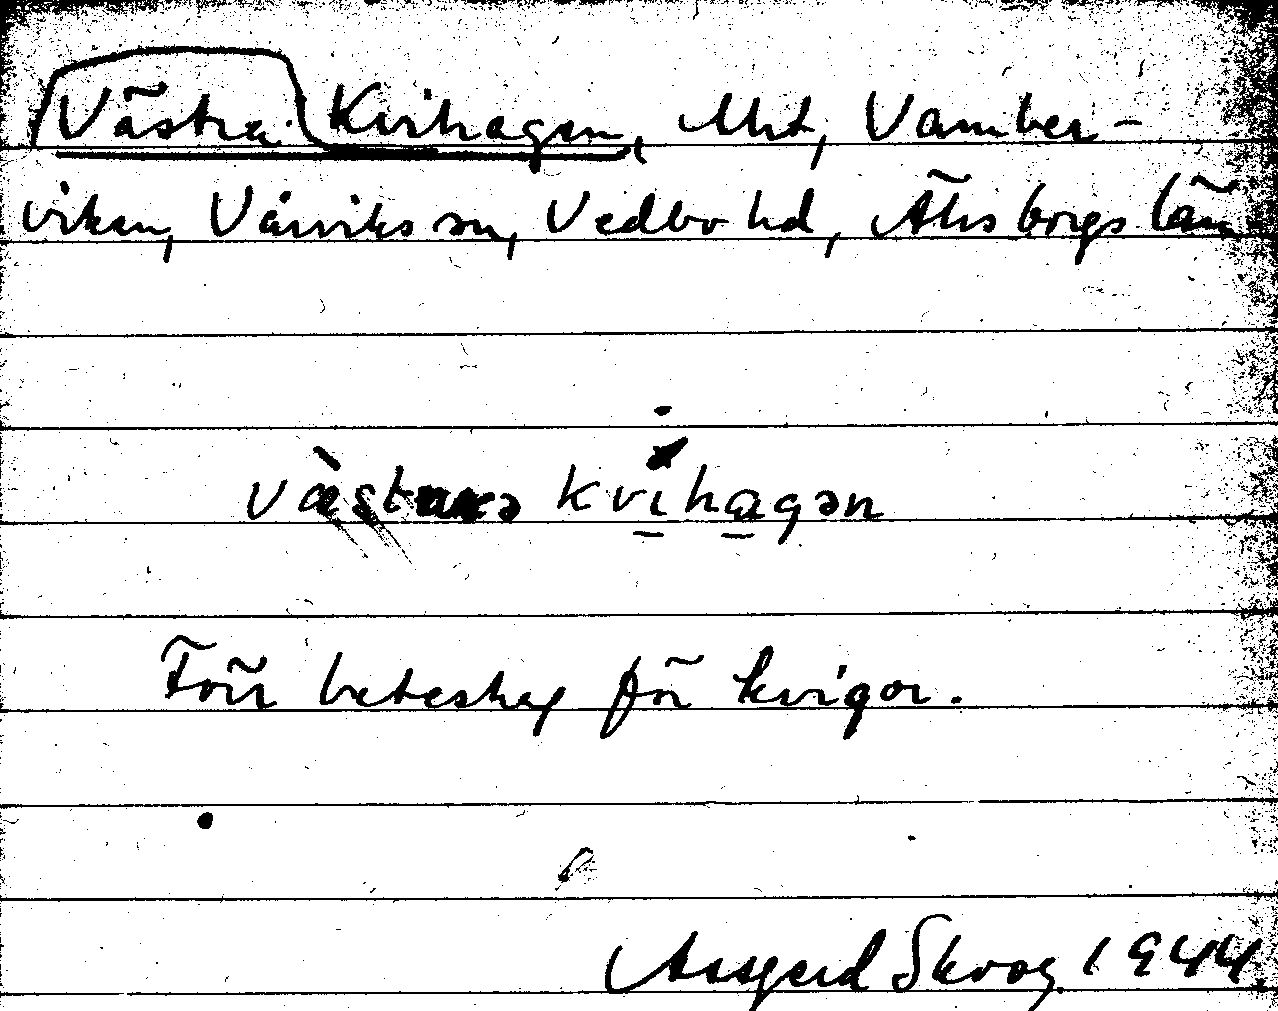 Västra Kvihagen, Mrt, Vamber-
viken, Vårviks sn, Vedbo hd, Älvsborgs län
kvihagən
Förr beteshag för kvigor.
Assgerd Skrog 1944.